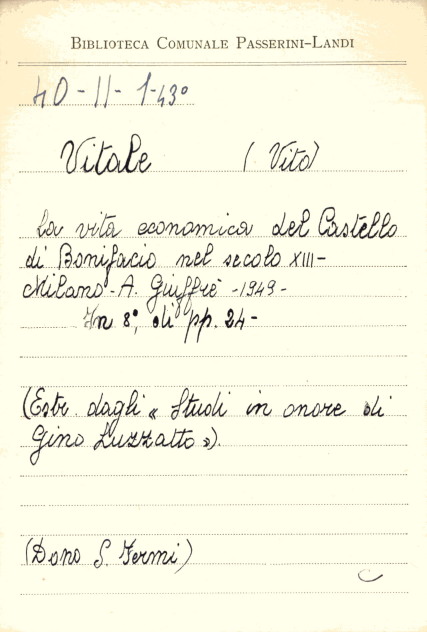 BIBLIOTECA COMUNALE PASSERINI-LANDI
40-II-1-43°
Vitale (Vito)
La vita economica del Castello
di Bonifacio nel secolo XIII-
Milano-A. Giuffrè -1949-
In 8°, di pp. 24-
(Estr. dagli « Studi in onore di
Gino Luzzatto »).
(Dono S. Fermi)